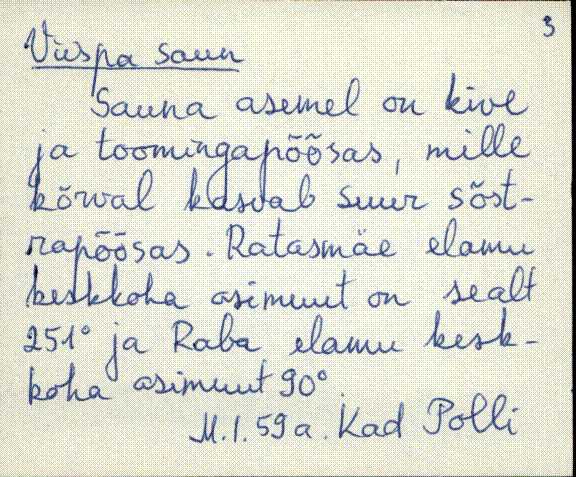 3
Viispa saun
Sauna asemel on kive
ja toomingapõõsas, mille
kõrval kasvab suur sõst-
rapõõsas. Ratasmäe elamu
keskkoha asimuut on sealt
251° ja Raba elamu kesk-
koha asimuut 90°.
M.I.59 a. Kad Polli